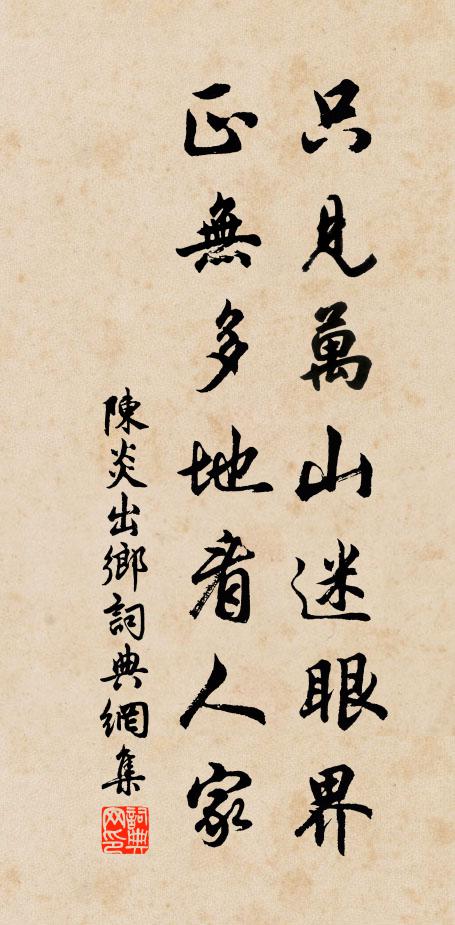 只見萬山迷眼界
正無多地看人家
陳炎出鄉詞典網集
詞典網印